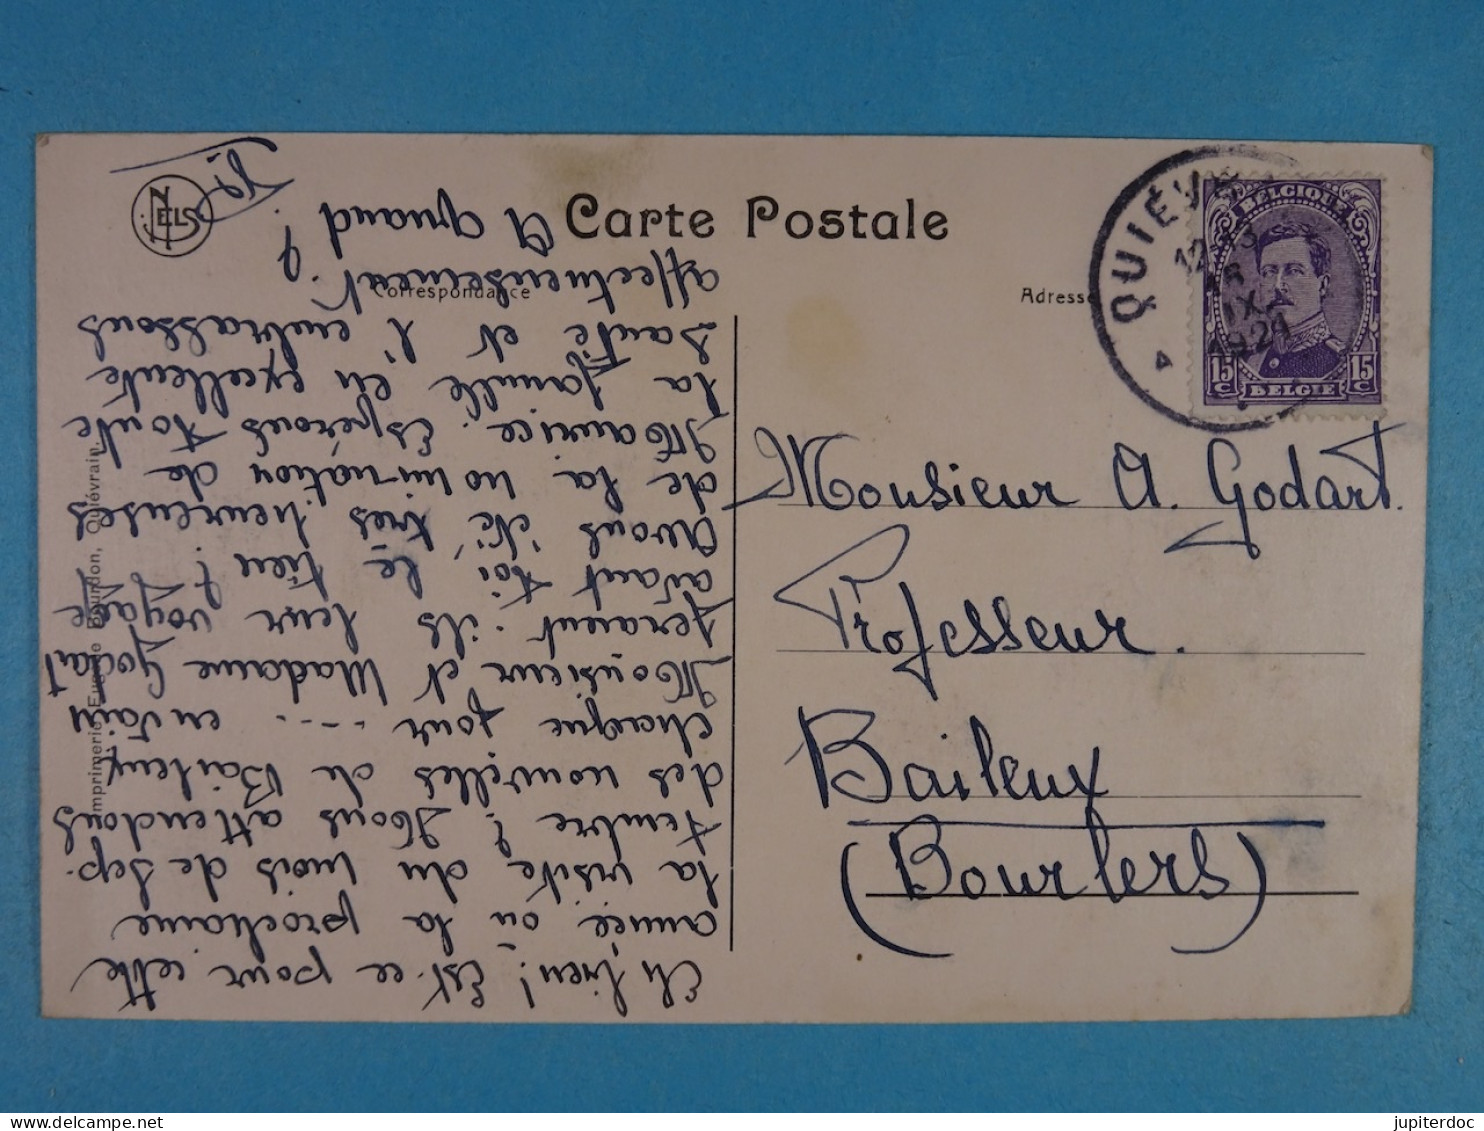 Carte Postale
Correspondance
Adresse
NELS
Imprimerie Eugène Bourdon, Quiévrain.
QUIÉV
12-13
IX
BELGIQUE
15 C
15 C
BELGIE
Monsieur A. Godart.
Professeur.
Baileux
(Bourlers)
Eh bien! Est-ce pour cette
année ou la prochaine
la visite du mois de Sep-
tembre? Nous attendons
des nouvelles de Baileux
chaque jour .... en vain
Monsieur et Madame Godart
feraient-ils leur voyage
avant toi, le tien?
Avons été très heureuses
de la nomination de
Maurice. Espérons toute
la famille en excellente
santé et l'embrassons
affectueusement.
A quand?
jupiterdoc